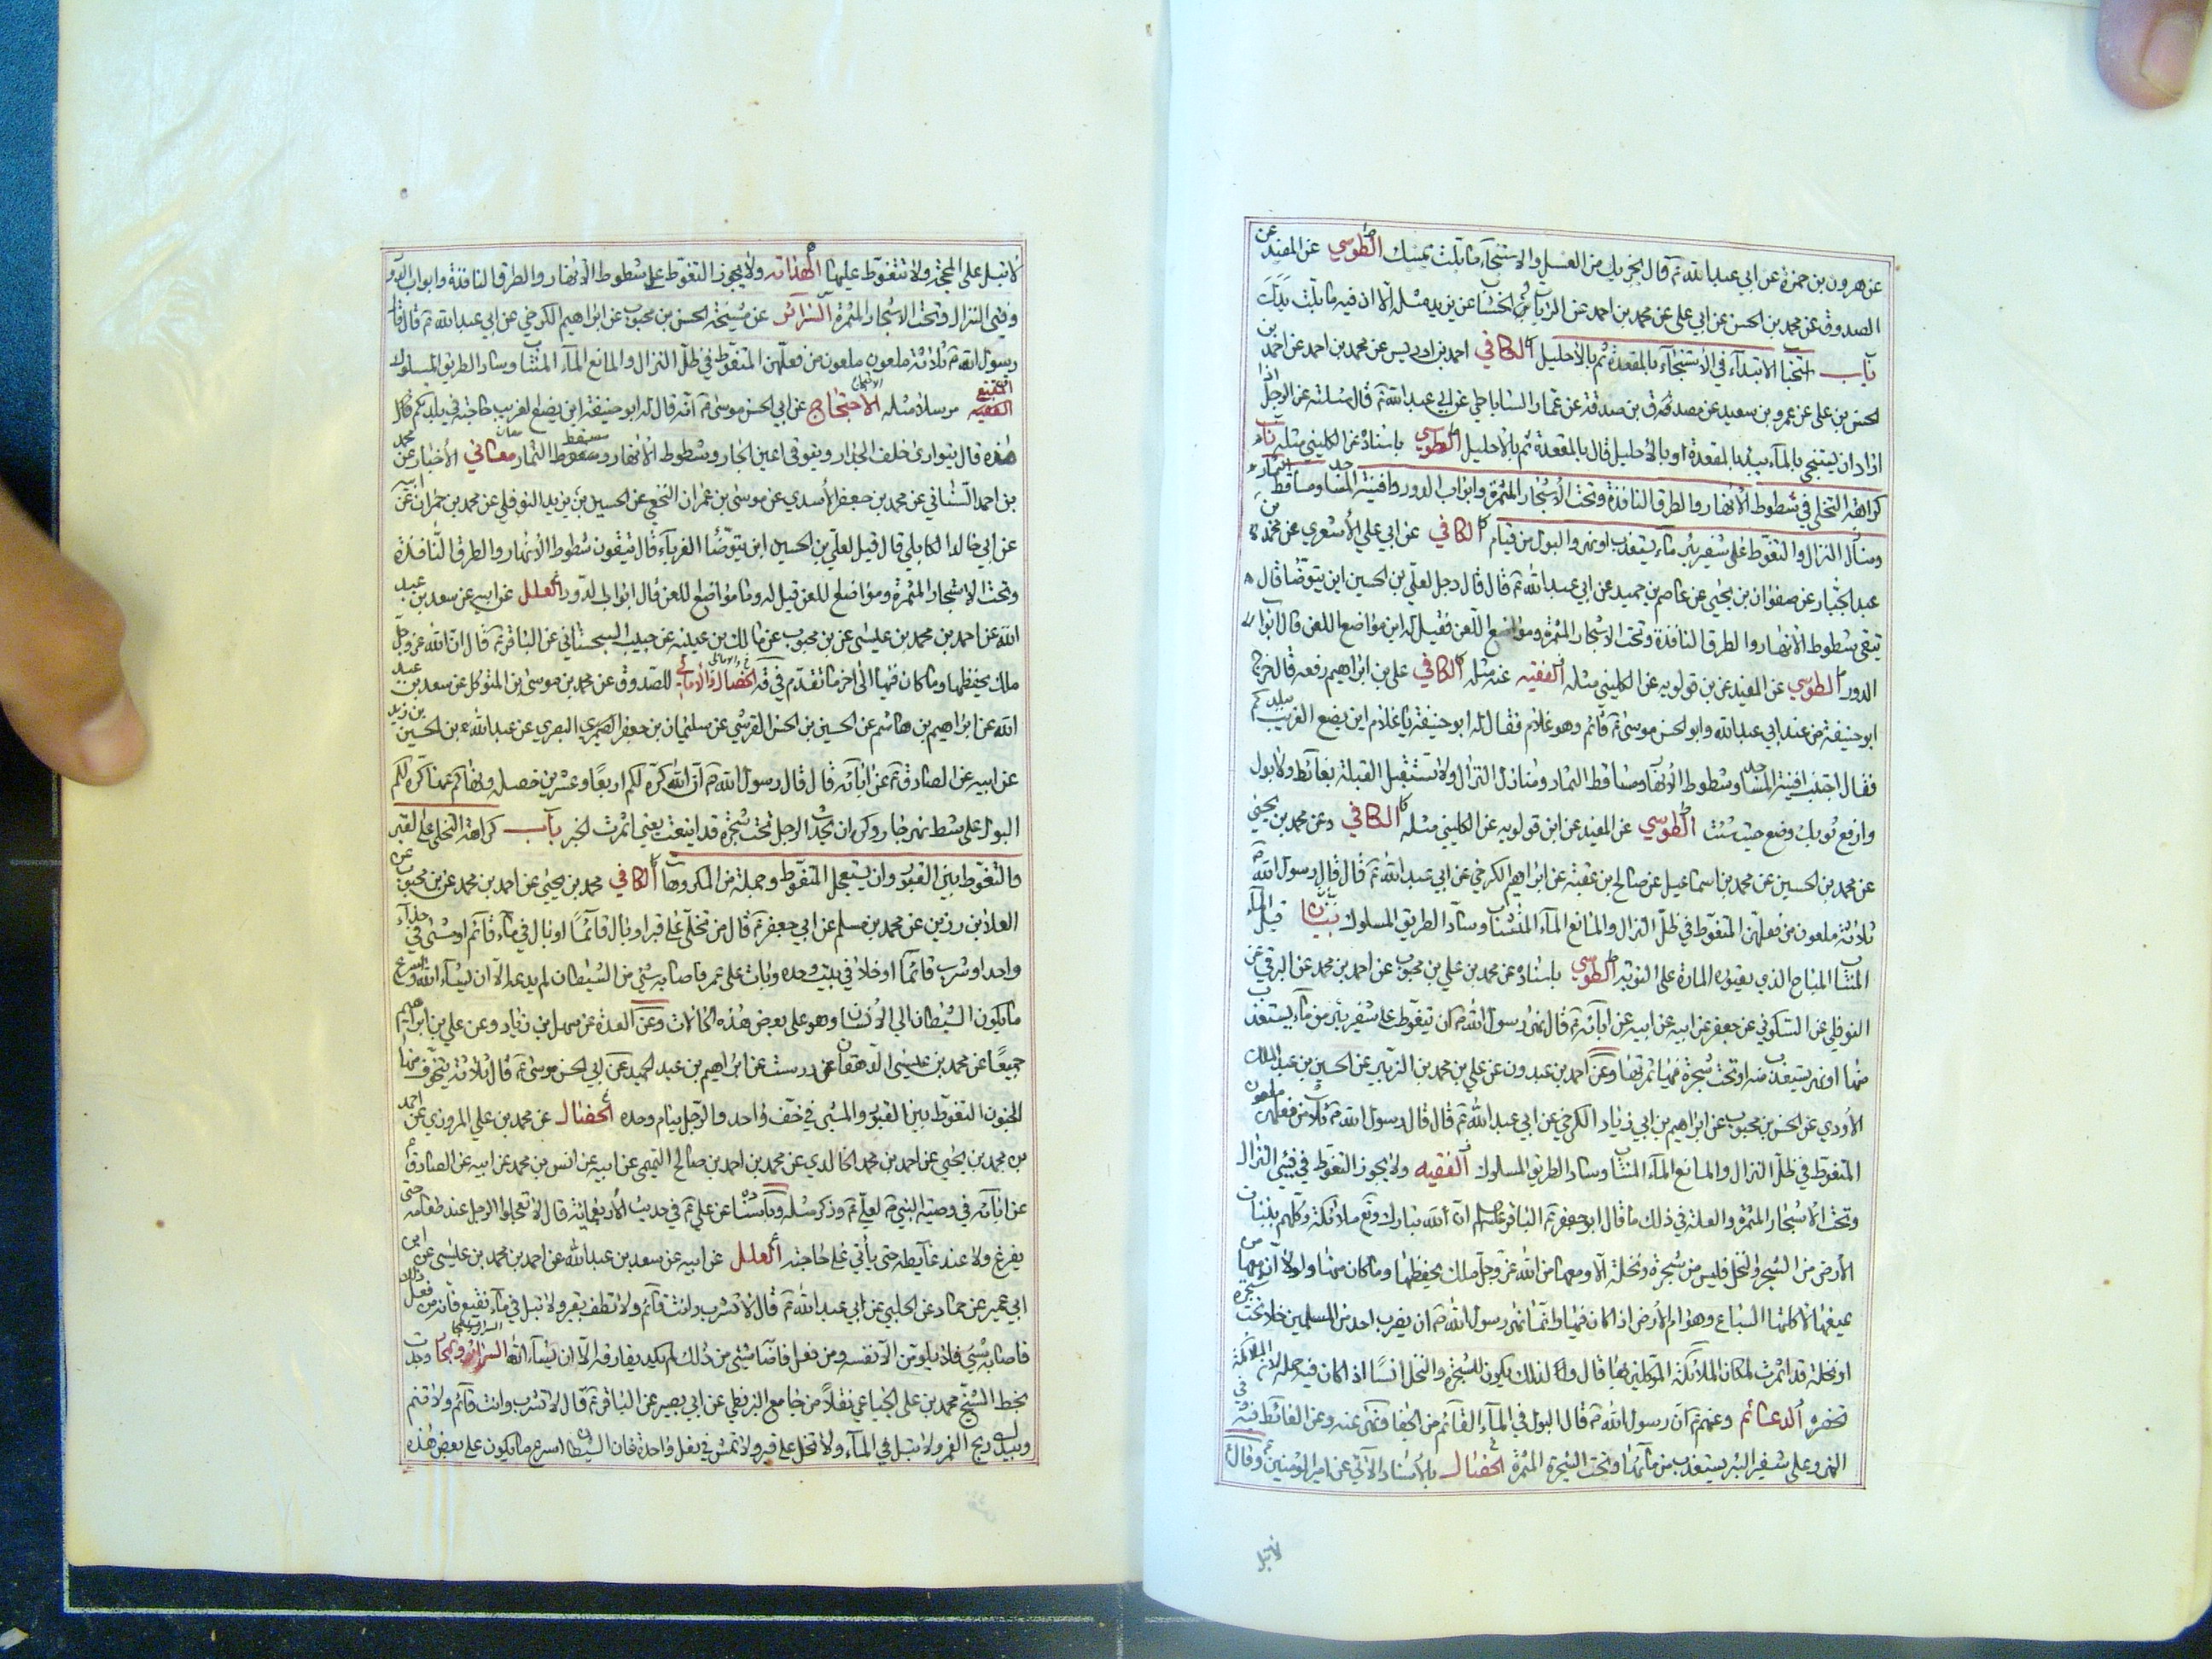 عن هرون بن حمزة عن ابي عبدالله ع قال يجزيك من الغسل والاستنجآء ما بلت يمينك الطوسي عن المفيد عن
الصدوق عن محمد بن الحسن عن ابي علي عن محمد بن احمد عن الخشا عن يزيد مثله الا ان فيه ما بلت يدك
باب استحبا الابتدآء في الاستنجآء بالمقعدة ثم بالاحليل الكافي احمد بن ادريس عن محمد بن احمد عن احمد بن
الحسن بن علي عن عمرو بن سعيد عن مصدق بن صدقة عن عمار الساباطي عن ابي عبدالله ع قال سئلته عن الرجل اذا
اراد ان يستنجي بالمآء يبدأ بالمقعدة او بالاحليل قال بالمقعدة ثم بالاحليل الطوسي باسناده عن الكليني مثله باب
كراهة التخلي في شطوط الانهار والطرق النافذة وتحت الاشجار المثمرة وابواب الدور وافنية المسا ومساقط الثمار
ومنازل النزال والتغوط على شفير بئر مآء يستعذب او نهر والبول من قيام الكافي عن ابي علي الاشعري عن محمد بن
عبد الجبار عن صفوان بن يحيى عن عاصم بن حميد عن ابي عبدالله ع قال قال رجل لعلي بن الحسين اين يتوضأ قال
تتقى شطوط الانهار والطرق النافذة وتحت الاشجار المثمرة ومواضع اللعن فقيل له اين مواضع اللعن قال ابوا
الدور الطوسي عن المفيد عن بن قولويه عن الكليني مثله الفقيه عنه مثله الكافي علي بن ابراهيم رفعه قال خرج
ابو حنيفة من عند ابي عبدالله وابو الحسن موسى ع قائم وهو غلام فقال له ابو حنيفة يا غلام اين يضع الغريب ببلدكم
فقال اجتنب افنية المسا وشطوط الانها ومساقط الثمار ومنازل النزال ولا تستقبل القبلة بغائط ولا بول
وارفع ثوبك وضع حيث شئت الطوسي عن المفيد عن ابن قولويه عن الكليني مثله الكافي وعن محمد بن يحيى
عن محمد بن الحسين عن محمد بن اسماعيل عن صالح بن عقبة عن ابراهيم الكرخي عن ابي عبدالله ع قال قال رسول الله ص
ثلاثة ملعون من فعلهن المتغوط في ظل النزال والمانع المآء المنتاب وساد الطريق المسلوك بيان قيل المآء
المنتاب المباح الذي يعتوره المارة على النوبة الطوسي باسناده عن محمد بن علي بن محبوب عن احمد بن محمد عن البرقي عن
النوفلي عن السكوني عن جعفر عن ابيه عن ابائه ع قال نهى رسول الله ص ان يتغوط على شفير بئر من مآء يستعذب
منها او نهر يستعذب منه او تحت شجرة فيها ثمرتها وعن احمد بن عبدون عن علي بن محمد بن الزبير عن الحسين بن عبد الملك
الاودي عن الحسن بن محبوب عن ابراهيم بن ابي زياد الكرخي عن ابي عبدالله ع قال قال رسول الله ص ثلاث من فعلهن ملعون
المتغوط في ظل النزال والمانع المآء المنتاب وساد الطريق المسلوك الفقيه ولا يجوز التغوط في فيئ النزال
وتحت الاشجار المثمرة والعلة في ذلك ما قال ابو جعفر ع الباقر ان لله تبارك وتع ملائكة وكلهم بنبات
الارض من الشجر والنخل فليس من شجرة ونخلة الا ومعها من الله عز وجل ملك يحفظها وما كان منها ولولا ان معها من
يمنعها لاكلتها السباع وهوام الارض اذا كان فيها وانما نهى رسول الله ص ان يضرب احد من المسلمين خلا تحت شجرة
او نخلة قد اثمرت لمكان الملائكة الموكلين بها قال ولذلك يكون للشجرة والنخل انسًا اذا كان فيه حمله لان الملائكة
تحضره الدعائم وعنهم ع ان رسول الله ص قال البول في المآء القائم من الجفا ونهى عنه وعن الغائط فيه وفي
النهر وعلى شفير البئر يستعذب من مآئها وتحت الشجرة المثمرة الخصال بالاسناد الاتي عن امير المؤمنين ع وقال
لا تبل
لا تبل على المحجة ولا تتغوط عليها الهداية ولا يجوز التغوط على شطوط الانهار والطرق النافذة وابواب الدور
وفئ النزال وتحت الاشجار المثمرة السرائر عن مشيخة الحسن بن محبوب عن ابراهيم الكرخي عن ابي عبدالله ع قال قا
رسول الله ص ثلاثة ملعون ملعون من فعلهن المتغوط في ظل النزال والمانع المآء المنتاب وساد الطريق المسلوك
المقنع الفقيه مرسلا مثله الاحتجاج عن ابي الحسن موسى ع انه قال له ابو حنيفة اين يضع الغريب حاجته في بلدكم
هذه قال يتوارى خلف الجدار ويتوقى اعين الجار وشطوط الانهار ومسقط الثمار معاني الاخبار عن محمد
بن احمد السناني عن محمد بن جعفر الاسدي عن موسى بن عمران النخعي عن الحسين بن يزيد النوفلي عن محمد بن حمران عن ابيه
عن ابي خالد الكابلي قال قيل لعلي بن الحسين اين يتوضأ الغربآء قال يتقون شطوط الانهار والطرق النافذة
وتحت الاشجار المثمرة ومواضع اللعن قيل له وما مواضع اللعن قال ابواب الدور العلل عن ابيه عن سعد بن عبد
الله عن احمد بن محمد بن عيسى عن بن محبوب عن مالك بن عيينة عن حبيب السجستاني عن الباقر ع قال ان لله عز وجل
ملك يحفظها وما كان فيها الى اخر ما تقدم في قه الخصال والامالي للصدوق عن محمد بن موسى بن المتوكل عن سعد بن عبد
الله عن ابراهيم بن هاشم عن الحسين بن الحسن القرشي عن سليمان بن جعفر البصري عن عبدالله بن الحسين بن زيد
عن ابيه عن الصادق ع عن ابائه قال قال رسول الله ص ان الله كره لكم اربعًا وعشرين خصلة ونهاكم عنها كره لكم
البول على شط نهر جار وكره ان يحدث الرجل تحت شجرة قد اينعت يعني اثمرت الخبر باب كراهة التخلي على القبر
والتغوط بين القبور وان يستعجل المتغوط وجملة من المكروهات الكافي محمد بن يحيى عن احمد بن محمد عن بن محبوب عن
العلا بن رزين عن محمد بن مسلم عن ابي جعفر ع قال من تخلى على قبر او بال قائمًا او بال في مآء قائم او مشى في حذآء
واحد او شرب قائمًا او خلا في بيت وحده وبات على غمر فاصابه شيئ من الشيطان لم يدعه الا ان يشآء الله واسرع
ما يكون الشيطان الى الانسان وهو على بعض هذه الحالات وعن العدة عن سهل بن زياد وعن علي بن ابراهيم
جميعًا عن محمد بن عيسى الدهقان عن درست عن ابراهيم بن عبد الحميد عن ابي الحسن موسى ع قال ثلاثة يتخوف منها
الجنون التغوط بين القبور والمشي في خف واحد والرجل ينام وحده الخصال عن محمد بن علي المروزي عن احمد
بن محمد بن يحيى عن احمد بن محمد الخالدي عن محمد بن احمد بن صالح التميمي عن ابيه عن انس بن محمد عن ابيه عن الصادق ع
عن ابائه في وصية النبي ص لعلي ع وذكر مثله وباسنا عن علي ع في حديث الاربعمائة قال لا تعجلوا الرجل عند طعامه حتى
يفرغ ولا عند غايطه حتى يأتي على حاجته العلل عن ابيه عن سعد بن عبدالله عن احمد بن محمد بن عيسى عن ابن
ابي عمير عن حماد عن الحلبي عن ابي عبدالله ع قال لا تشرب وانت قآئم ولا تطف بقبر ولا تبل في مآء نقيع فانه من فعل ذلك
فاصابه شيئ فلا يلومن الا نفسه ومن فعل فاصا شيئ من ذلك لم يكد يفارقه الا ان يشآء الله السرائر وجدت
بخط الشيخ محمد بن علي الجباعي نقلًا من جامع البزنطي عن ابي بصير عن الباقر ع قال لا تشرب وانت قآئم ولا تنم
وبيدك ريح الغمر ولا تبل في المآء ولا تخل على قبر ولا تمش في نعل واحدة فان الشيطا اسرع ما يكون على بعض هذه